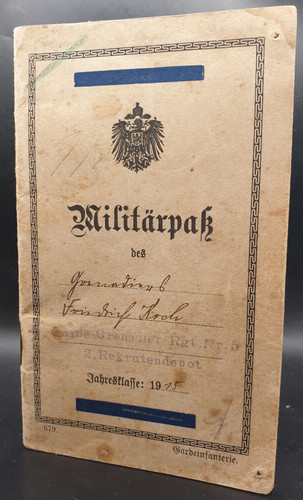 Militärpaß
des
Grenadiers
Friedrich Koch
Garde-Grenadier-Rgt. Nr. 5
2. Rekrutendepot
Jahresklasse: 1915
679.
Gardeinfanterie.